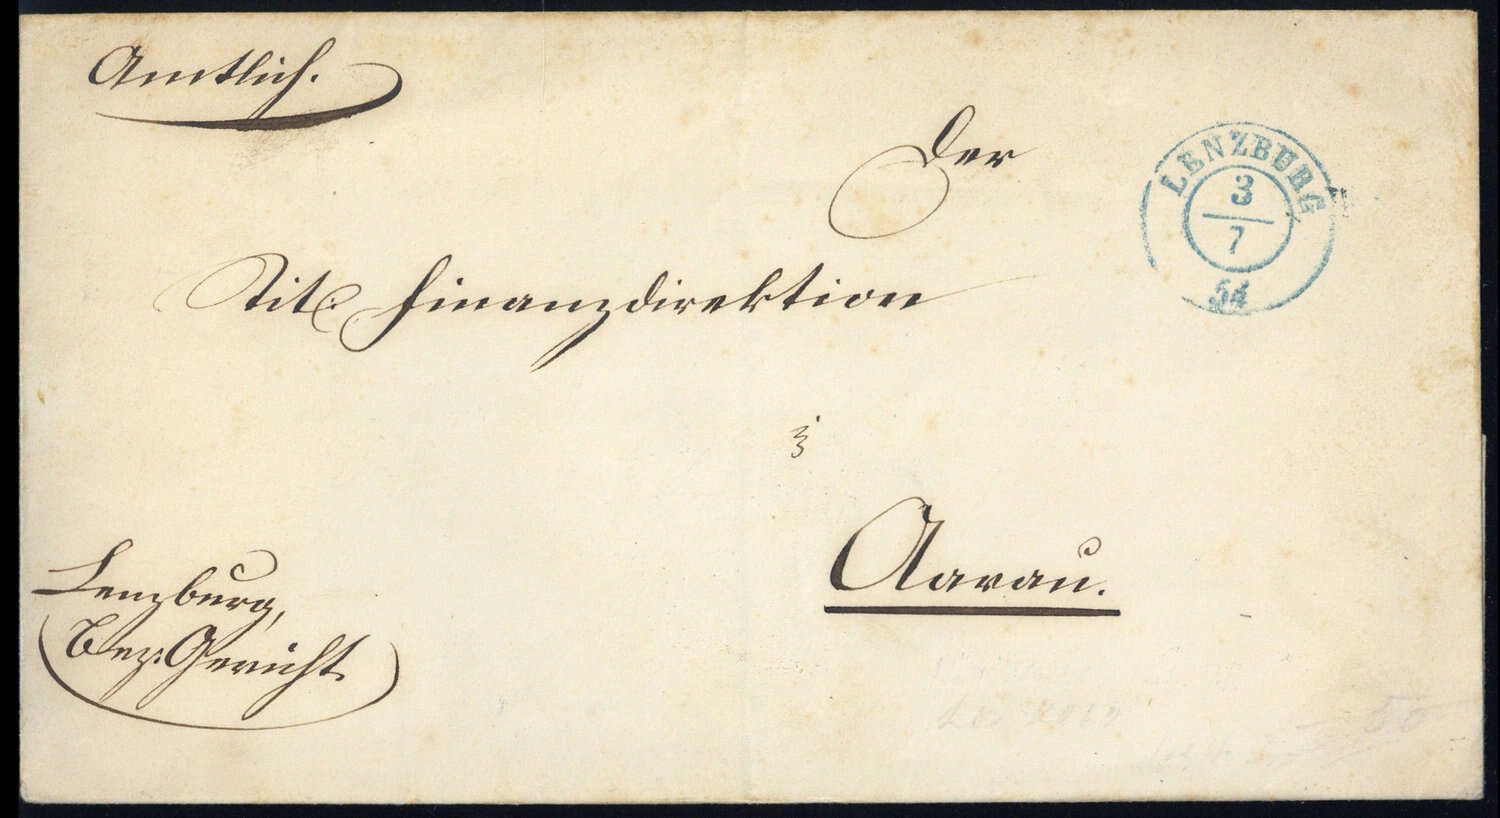 Amtlich.
Der
LENZBURG
3
7
54
Tit. Finanzdirektion
Aarau.
Lenzburg,
Bez. Gericht.
50